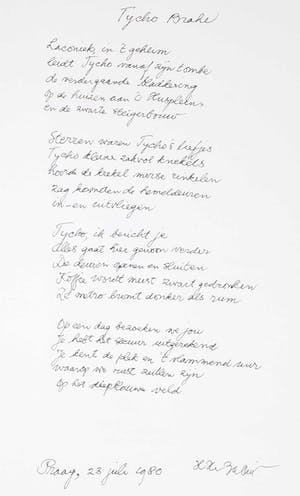 Tycho Brahe
Laconiek, in 't geheim
leidt Tycho vanaf zijn tombe
de verdergaande bladdering
op de huizen aan 't
En de zwarte steigerbouw
Sterren waren Tycho's liefjes
Tycho kleine zakvol knekels
hoorde de krekel morse tinkelen
zag kometen de hemeldeuren
in- en uitvliegen
Tycho, ik bericht je
Alles gaat hier gewoon verder
De deuren openen en sluiten
Koffie wordt meest zwart gedronken
De metro bromt donker als rum
Op een dag bezoeken we jou
Je hebt het secuur uitgerekend
Je kent de plek en 't vlammend uur
waarop we rust zullen zijn
Op het diepblauwe veld
Praag, 23 juli 1980